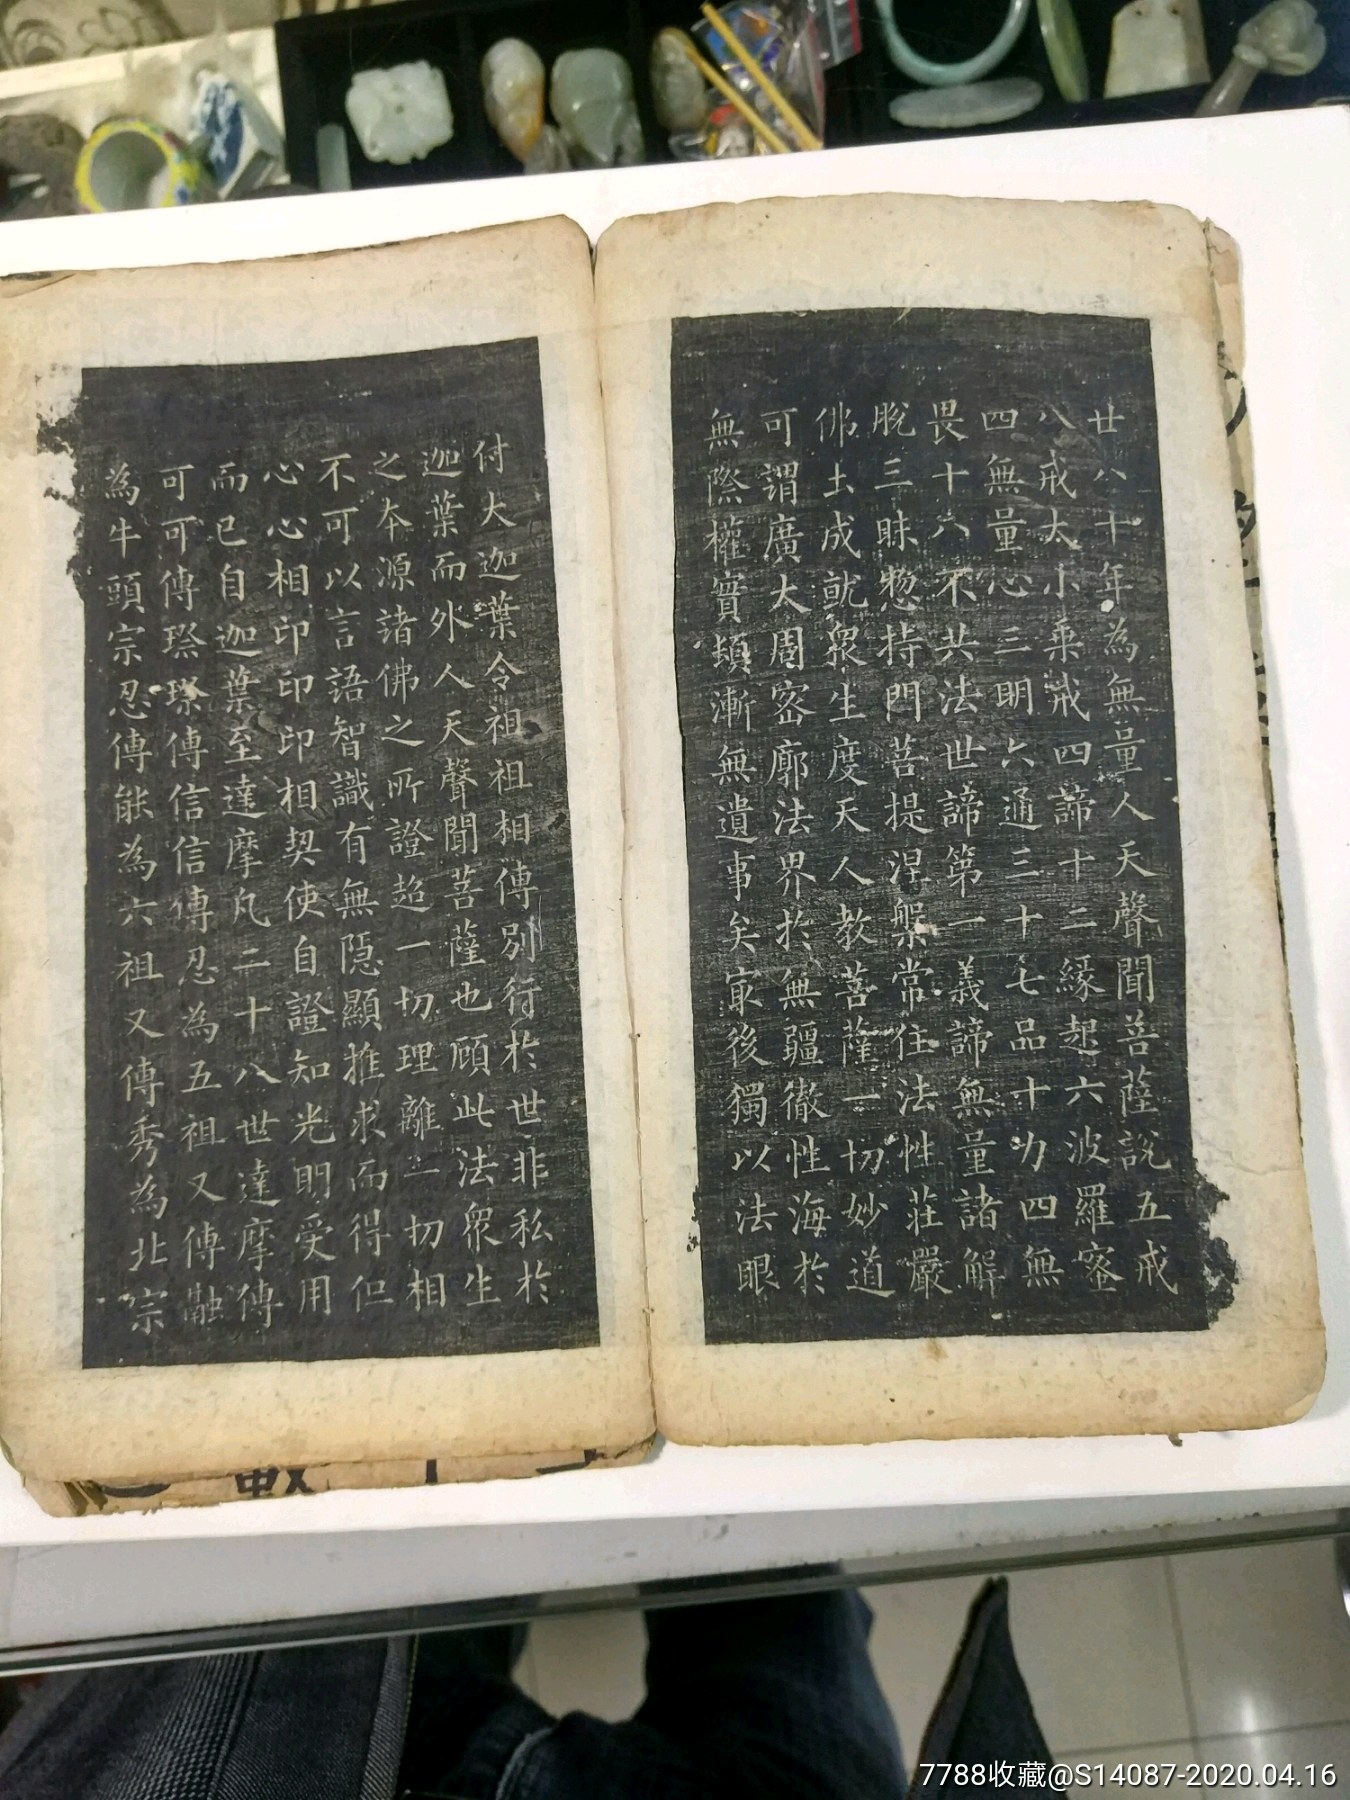 廿八十年為無量人天聲聞菩薩說五戒
八戒大小乘戒四諦十二緣起六波羅蜜
四無量心三明六通三十七品十力四無
畏十八不共法世諦第一義諦無量諸解
脫三昧惣持門菩提涅槃常住法性莊嚴
佛土成就衆生度天人教菩薩一切妙道
可謂廣大周密廓法界於無疆徹性海於
無際權實頓漸無遺事矣冣後獨以法眼
付大迦葉令祖祖相傳別行於世非私於
迦葉而外人天聲聞菩薩也顧此法衆生
之本源諸佛之所證超一切理離一切相
不可以言語智識有無隱顯推求而得但
心心相印印印相契使自證知光明受用
而已自迦葉至達摩凡二十八世達摩傳
可可傳璨璨傳信信傳忍為五祖又傳融
為牛頭宗忍傳能為六祖又傳秀為北宗
7788收藏@S14087-2020.04.16